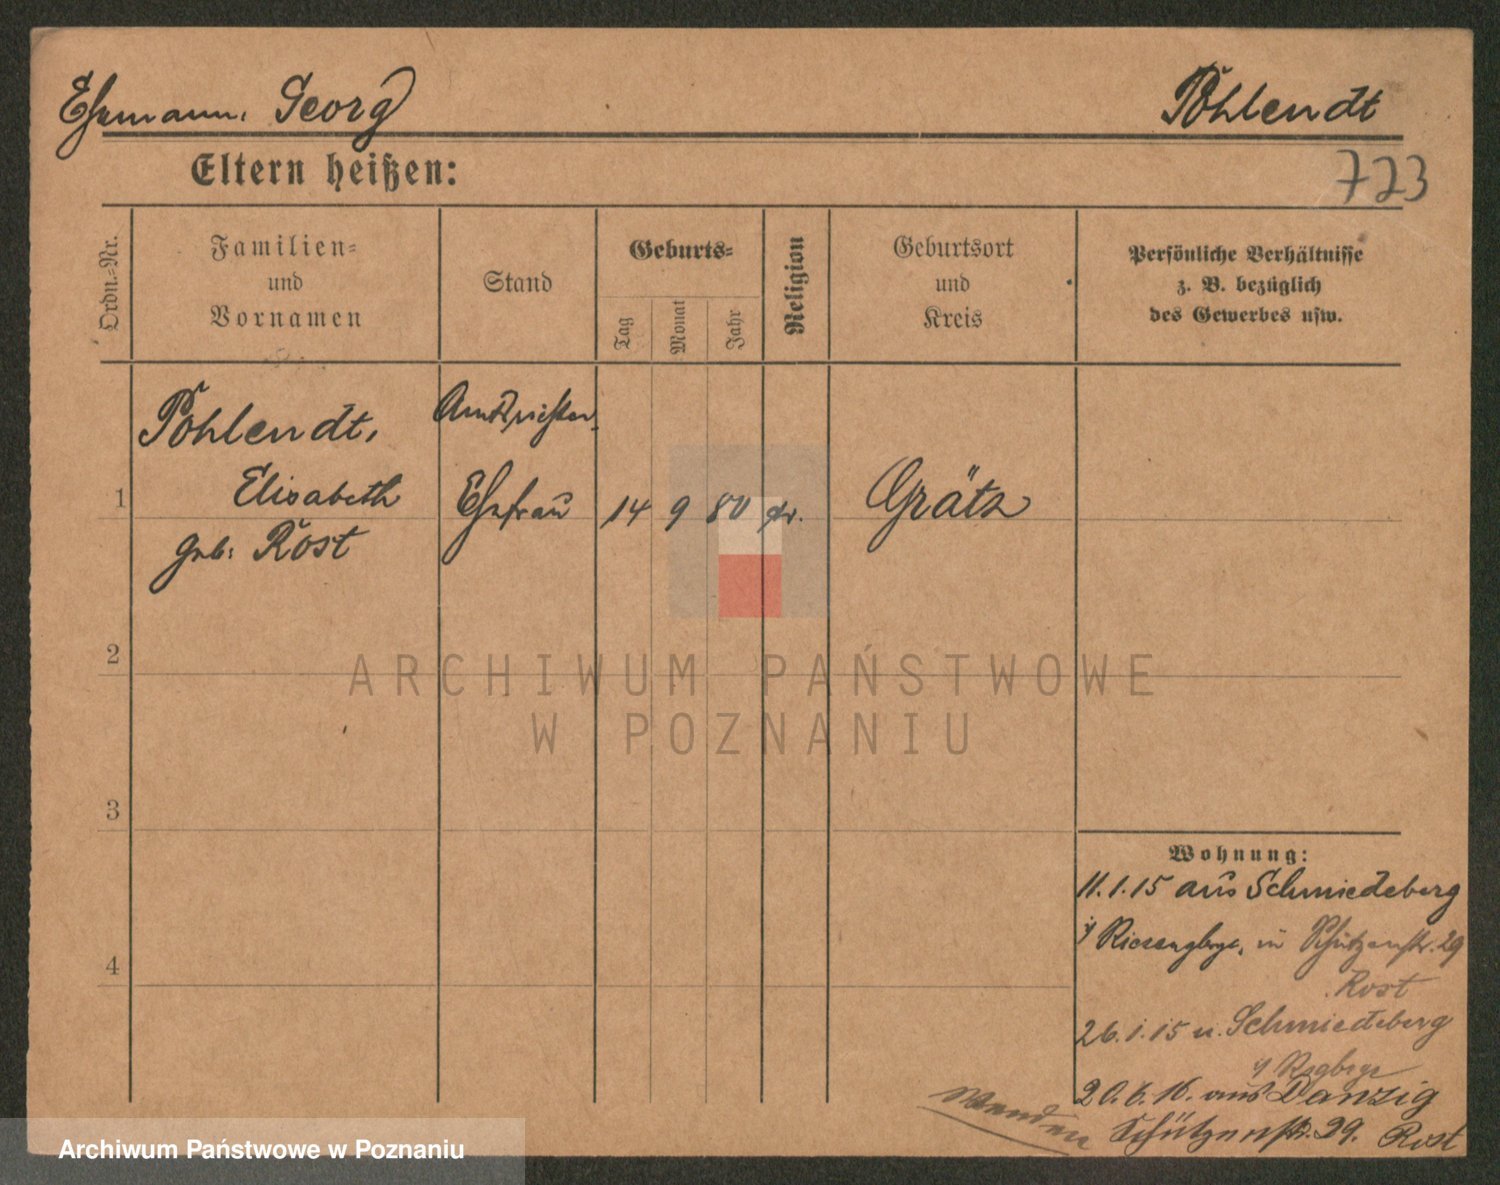 Ehemann: Georg
Pohlendt
Eltern heißen:
723
Ordn.=Nr.
Familien=
und
Vornamen
Stand
Geburts=
Tag
Monat
Jahr
Religion
Geburtsort
und
Kreis
Persönliche Verhältnisse
z. B. bezüglich
des Gewerbes usw.
1
Pohlendt,
Elisabeth
geb: Rost
Amtsrichter
Ehefrau
14
9
80
Grätz
2
3
4
Wohnung:
11.1.15 aus Schmiedeberg
Riesengbge, Schützenstr. 29
Rost
26.1.15 n. Schmiedeberg
20.6.16. aus Danzig
Schützenstr. 29. Rost
Wenden
ARCHIWUM PAŃSTWOWE
W POZNANIU
Archiwum Państwowe w Poznaniu